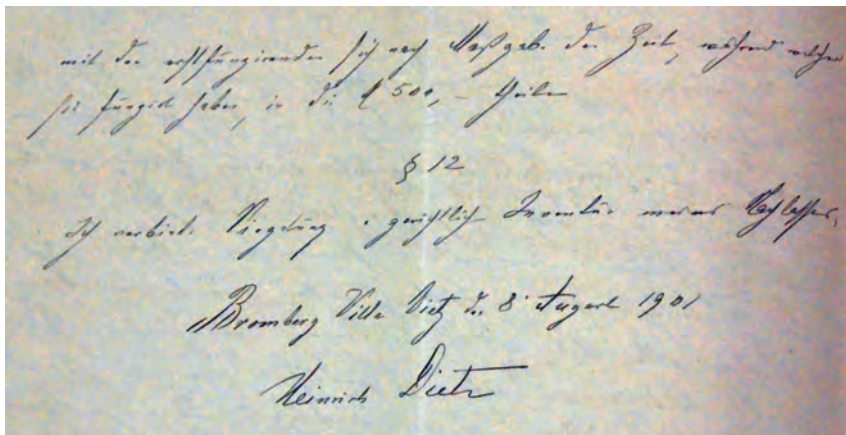 mit den erstfungirenden sich nach Maßgabe der Zeit, während welcher
sie fungirt haben, in die ₰ 500,– theilen
§ 12
Ich verbiete Siegelung u gerichtliche Inventur meines Nachlasses.
Bromberg Villa Dietz den 8 August 1901
Heinrich Dietz